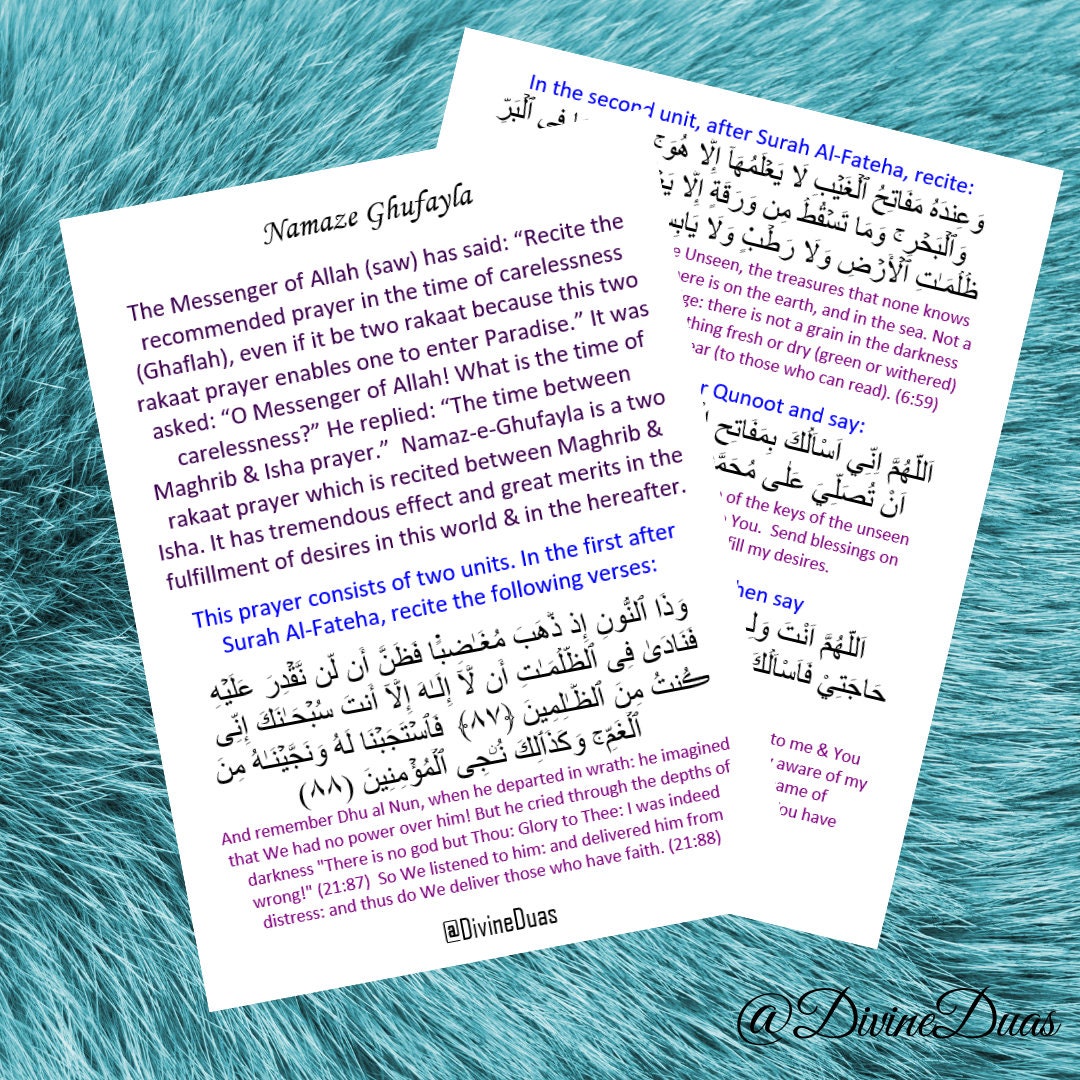 Namaze Ghufayla
The Messenger of Allah (saw) has said: “Recite the
recommended prayer in the time of carelessness
(Ghaflah), even if it be two rakaat because this two
rakaat prayer enables one to enter Paradise.” It was
asked: “O Messenger of Allah! What is the time of
carelessness?” He replied: “The time between
Maghrib & Isha prayer.” Namaz-e-Ghufayla is a two
rakaat prayer which is recited between Maghrib &
Isha. It has tremendous effect and great merits in the
fulfillment of desires in this world & in the hereafter.
This prayer consists of two units. In the first after
Surah Al-Fateha, recite the following verses:
وَذَا ٱلنُّونِ إِذ ذَّهَبَ مُغَـٰضِبًا فَظَنَّ أَن لَّن نَّقْدِرَ عَلَيْهِ
فَنَادَىٰ فِى ٱلظُّلُمَـٰتِ أَن لَّآ إِلَـٰهَ إِلَّآ أَنتَ سُبْحَـٰنَكَ إِنِّى
كُنتُ مِنَ ٱلظَّـٰلِمِينَ ﴿٨٧﴾ فَٱسْتَجَبْنَا لَهُ وَنَجَّيْنَـٰهُ مِنَ
ٱلْغَمِّ ۚ وَكَذَٰلِكَ نُـۨجِى ٱلْمُؤْمِنِينَ (٨٨)
And remember Dhu al Nun, when he departed in wrath: he imagined
that We had no power over him! But he cried through the depths of
darkness "There is no god but Thou: Glory to Thee: I was indeed
wrong!" (21:87) So We listened to him: and delivered him from
distress: and thus do We deliver those who have faith. (21:88)
@DivineDuas
In the second unit, after Surah Al-Fateha, recite:
وَعِندَهُ مَفَاتِحُ ٱلْغَيْبِ لَا يَعْلَمُهَآ إِلَّا هُوَ ۚ فِى ٱلْبَرِّ
وَٱلْبَحْرِ ۚ وَمَا تَسْقُطُ مِن وَرَقَةٍ إِلَّا
ظُلُمَـٰتِ ٱلْأَرْضِ وَلَا رَطْبٍ وَلَا
Unseen, the treasures that none knows
there is on the earth, and in the sea. Not a
there is not a grain in the darkness
fresh or dry (green or withered)
(to those who can read). (6:59)
Qunoot and say:
اَللّٰهُمَّ اِنِّي اَسْأَلُكَ بِمَفَاتِحِ
اَنْ تُصَلِّيَ عَلٰى
of the keys of the unseen
You. Send blessings on
my desires.
then say
اَللّٰهُمَّ اَنْتَ
حَاجَتِيْ فَاَسْأَلُكَ
to me & You
aware of my
of
have
@DivineDuas